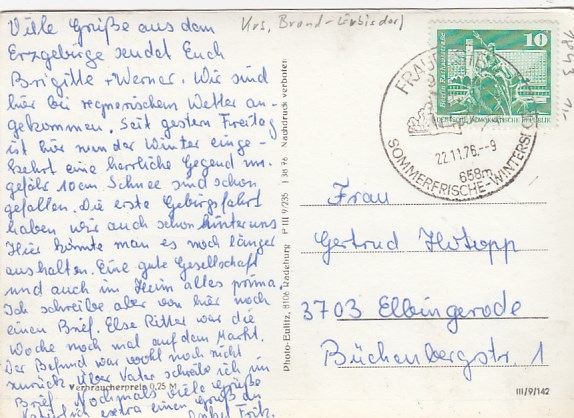 Viele Grüße aus dem
Erzgebirge sendet Euch
Brigitte + Werner. Wir sind
hier bei regnerischem Wetter an-
gekommen. Seit gestern Freitag
ist hier nun der Winter einge-
kehrt eine herrliche Gegend un-
gefähr 10cm Schnee sind schon
gefallen. Die erste Gebirgsfahrt
haben wir auch schon hinter uns
Hier könnte man es noch länger
aushalten. Eine gute Gesellschaft
und auch im Heim alles prima.
Ich schreibe aber von hier noch
einen Brief. Else Ritter war die
Woche noch mal auf dem Markt.
Der Befund war wohl noch nicht
zurück. Über Vater schreibe ich im
Brief. Nochmals viele Grüße
extra einen Gruß an
Fritz.
Verbraucherpreis 0,25 M
Krs. Brand-Erbisdorf
Photo-Eulitz, 8106 Radeburg P III 9/235 I 36 76 Nachdruck verboten
10
Berlin Rathausstraße
DEUTSCHE DEMOKRATISCHE REPUBLIK
FRAU
22.11.76.--9
658m
SOMMERFRISCHE-WINTERSP
Frau
Gertrud Hotopp
3703 Elbingerode
Büchenbergstr. 1
III/9/142